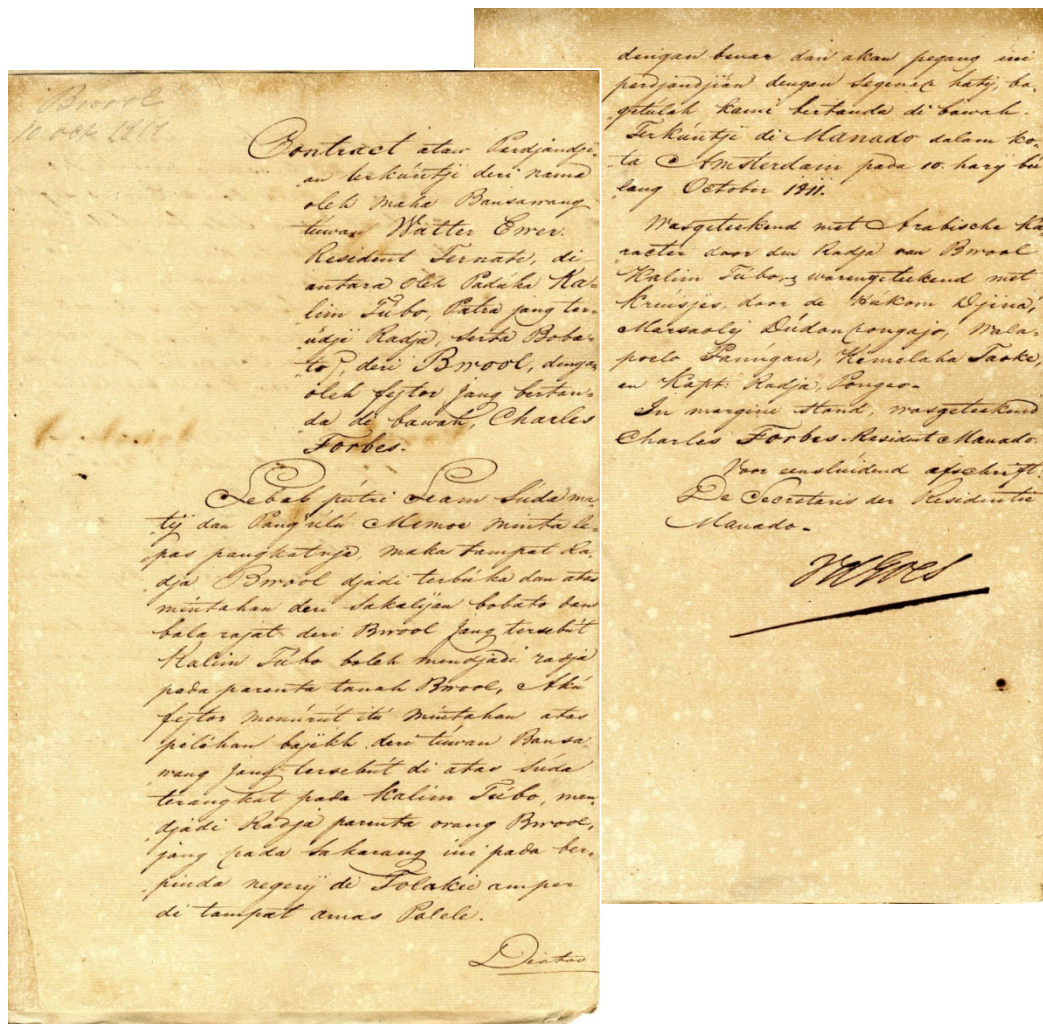 Bwool
10 oct 1811
Contract ataw Perdjandji-
an terkúntji deri nama
oleh maha Bansawang
túwan Walter Ewer.
Resident Ternate, di-
antara oleh Padúka Ka-
lim Túbo, Patra jang ter-
údji Radja, serta Boba-
to, deri Bwool, dengan
oleh fejtor jang bertan-
da di bawah, Charles
Forbes.
Sebab pútri Leam Súda ma-
tij dan Pang'úlú Memoe minta le-
pas pangkatnja, maka tampat Ra-
dja Bwool djadi terbúka dan atas
mintahan deri sakalijan bobato dan
bala rajat deri Bwool jang tersebút
Kalim Túbo boleh mendjadi radja
pada parenta tanah Bwool, Akú
fejtor menúrút itú mintahan atas
piléhan bajikh deri túwan Bansa-
wang jang tersebút di atas súda
terangkat pada Kalim Túbo, men-
djadi Radja parenta orang Bwool,
jang pada sakarang ini pada ber-
pinda negerij de Tolakie amper
di tampat amas Palele.
Diatas
dengan benar dan akan pegang ini
perdjandjian dengan segenap hatij, ba-
gitúlah kami bertanda di bawah.
Terkúntji di Manado dalam ko-
ta Amsterdam pada 10. hary bú-
lang October 1811.
Wasgeteekend met Arabische Ka-
racter door den Radja van Bwool
Kalim Túbo, warengeteekend met
Kruisjes, door de Húkom Djiná,
Marsaolij Dúdon pongajo, Wala-
poelo Panúgan, Kemelaha Taoke,
en Kapt. Radja, Pongeo.
In margine stond, wasgeteekend
Charles Forbes. Resident Manado.
Voor eensluidend afschrift.
De Secretaris der Residentie
Manado.